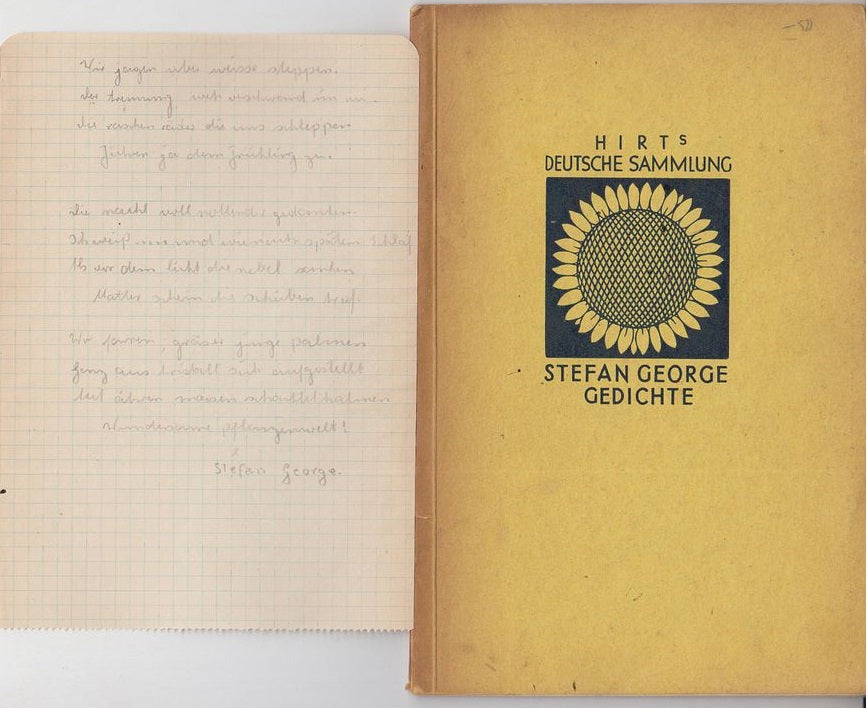 Wir jagen über weisse steppen.
Der trennung weh verschwand im nu.
die raschen räder die uns schleppen
Führen ja dem frühling zu.
Die nacht voll rollender gedanken
und späten Schlaf
Als vor dem licht die nebel sanken
Matter schein die scheiben traf.
Wir gräser junge palmen
Ganz aus kristall sich aufgestellt
mit ähren moosen schachtelhalmen
Wundersame pflanzenwelt!
Stefan George.
-50
HIRTS
DEUTSCHE SAMMLUNG
STEFAN GEORGE
GEDICHTE